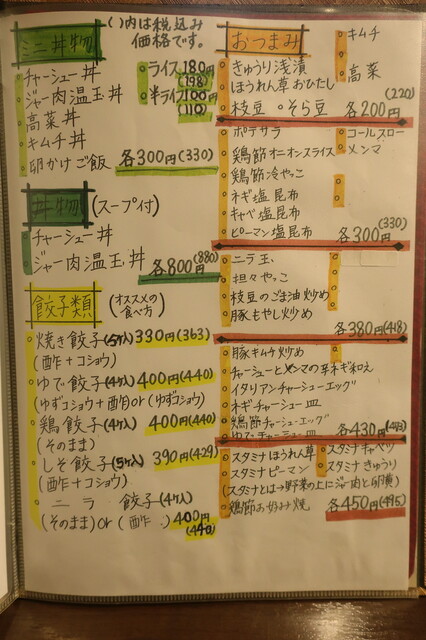 ミニ丼物
( )内は税込み
価格です。
チャーシュー丼
ジャー肉温玉丼
高菜丼
キムチ丼
卵かけご飯 各300円(330)
ライス180円
(198)
半ライス100円
(110)
丼物 (スープ付)
チャーシュー丼
ジャー肉温玉丼
各800円(880)
餃子類 (オススメの
食べ方)
焼き餃子(5ケ入) 330円(363)
(酢+コショウ)
ゆで餃子(4ケ入) 400円(440)
(ゆずコショウ+酢)or(ゆずコショウ)
鶏餃子(4ケ入) 400円(440)
(そのまま)
しそ餃子(5ケ入) 390円(429)
(酢+コショウ)
ニラ 餃子(4ケ入)
(そのまま)or(酢 ) 400円
(440)
おつまみ
キムチ
高菜
きゅうり浅漬
ほうれん草おひたし
枝豆 そら豆 各200円
(220)
ポテサラ コールスロー
鶏節オニオンスライス メンマ
鶏節冷やっこ
ネギ塩昆布
キャベ塩昆布
ピーマン塩昆布 各300円
(330)
ニラ玉
担々やっこ
枝豆のごま油炒め
豚もやし炒め
各380円(418)
豚キムチ炒め
チャーシューとメンマの辛ネギ和え
イタリアンチャーシューエッグ
ネギチャーシュー皿
鶏節チャーシューエッグ
ゆでチャーシュー皿 各430円(473)
スタミナほうれん草 スタミナキャベツ
スタミナピーマン スタミナきゅうり
(スタミナとは→野菜の上にジャー肉と卵黄)
鶏節お好み焼 各450円(495)